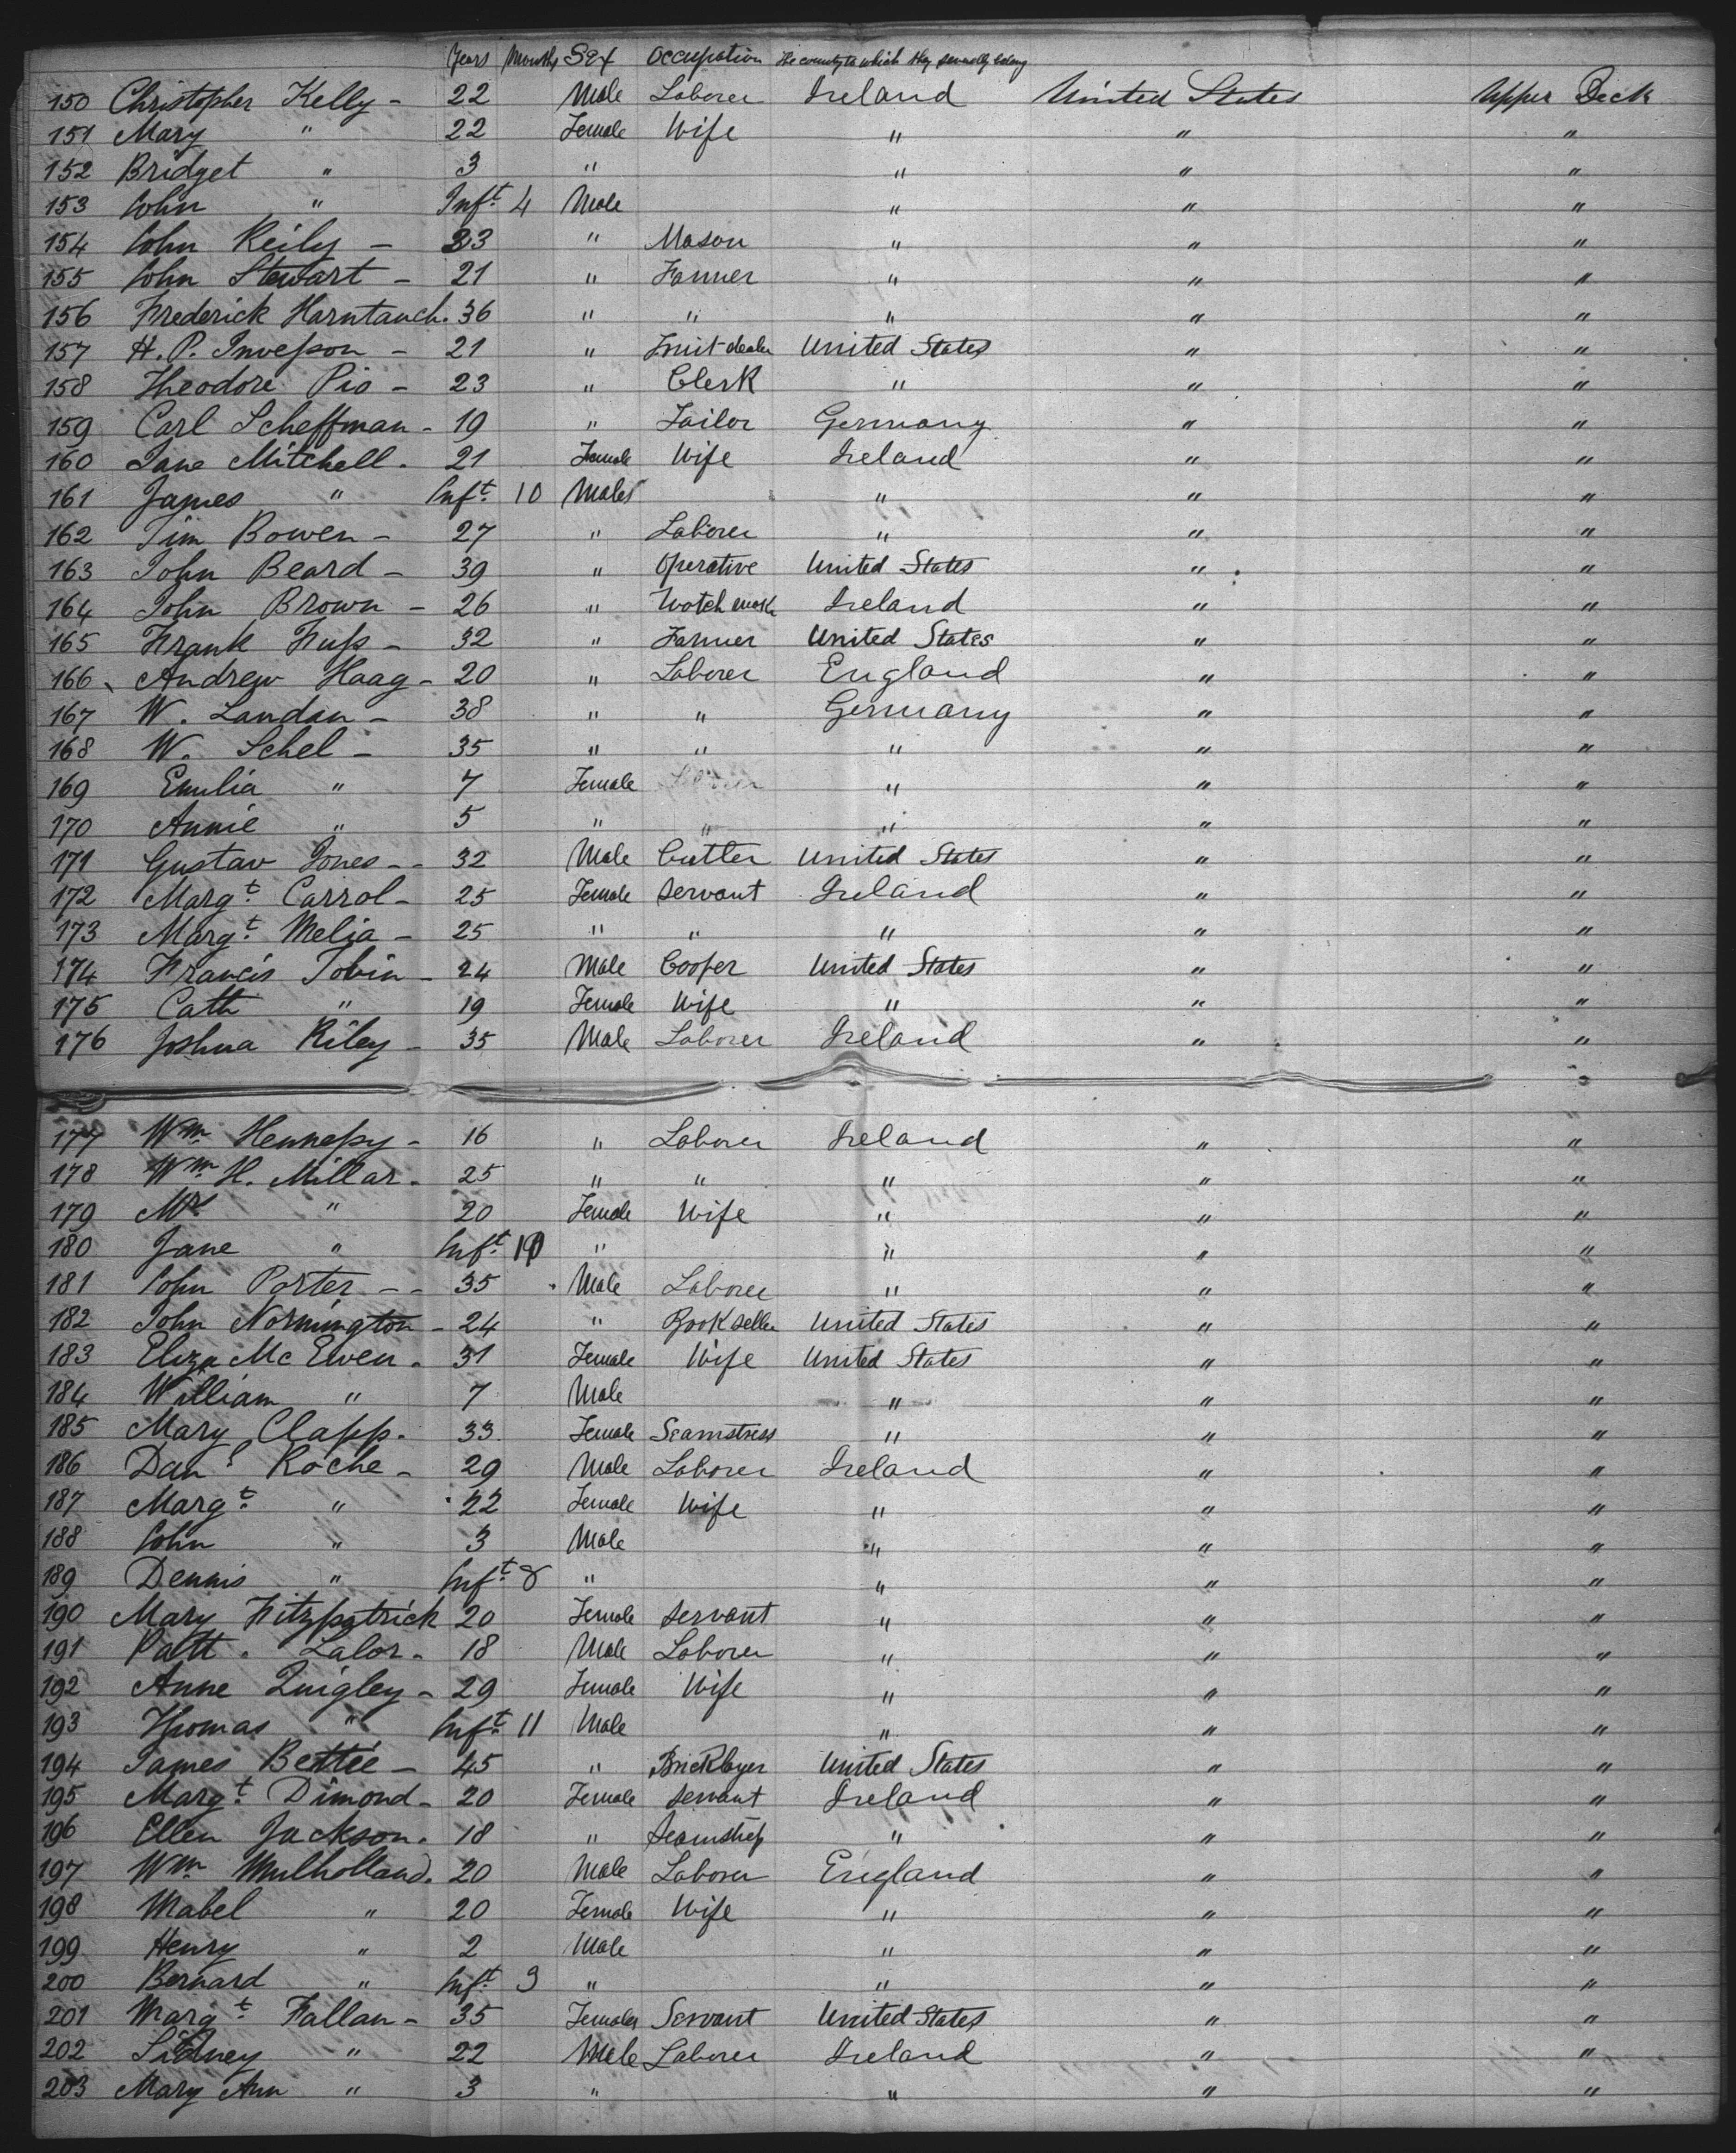 Years Months Sex Occupation The country to which they severally belong
150 Christopher Kelly - 22 Male Laborer Ireland United States Upper Deck
151 Mary " 22 Female Wife " " "
152 Bridget " 3 " " " "
153 John " Inft. 4 Male " " "
154 John Reily - 23 " Mason " " "
155 John Stewart - 21 " Farmer " " "
156 Frederick Harntauch. 36 " " " " "
157 H. P. Invesson - 21 " Fruit dealer United States " "
158 Theodore Pio - 23 " Clerk " " "
159 Carl Scheffman - 19 " Tailor Germany " "
160 Jane Mitchell . 21 Female Wife Ireland " "
161 James " Inft. 10 Male " " "
162 Tim Bowen - 27 " Laborer " " "
163 John Beard - 39 " Operative United States " "
164 John Brown - 26 " Watch mak Ireland " "
165 Frank Fuss - 32 " Farmer United States " "
166 Andrew Haag - 20 " Laborer England " "
167 W. Landan - 38 " " Germany " "
168 W. Schel - 35 " " " " "
169 Emilia " 7 Female " " "
170 Annie " 5 " " " " "
171 Gustav Jones - - 32 Male Cutler United States " "
172 Margt. Carrol - 25 Female Servant Ireland " "
173 Margt. Melia - 25 " " " " "
174 Francis Tobin - 24 Male Cooper United States " "
175 Cath " 19 Female Wife " " "
176 Joshua Riley - 35 Male Laborer Ireland " "
177 Wm Hennessy - 16 " Laborer Ireland " "
178 Wm. H. Millar . 25 " " " " "
179 Mrs " 20 Female Wife " " "
180 Jane " Inft. " " " "
181 John Porter - - 35 Male Laborer " " "
182 John Normington - 24 " Book seller United States " "
183 Eliza Mc Ewen . 31 Female Wife United States " "
184 William " 7 Male " " "
185 Mary Clapp . 33 Female Seamstress " " "
186 Danl Roche - 29 Male Laborer Ireland " "
187 Margt. " 22 Female Wife " " "
188 John " 3 Male " " "
189 Dennis " Inft. 8 " " " "
190 Mary Fitzpatrick 20 Female Servant " " "
191 Patt . Lalor . 18 Male Laborer " " "
192 Anne Quigley - 29 Female Wife " " "
193 Thomas " Inft. 11 Male " " "
194 James Bettie - 45 " Bricklayer United States " "
195 Margt. Dimond - 20 Female Servant Ireland " "
196 Ellen Jackson . 18 " Seamstress " " "
197 Wm Mulholland . 20 Male Laborer England " "
198 Mabel " 20 Female Wife " " "
199 Henry " 2 Male " " "
200 Bernard " Inft. 9 " " " "
201 Margt. Fallan - 35 Female Servant United States " "
202 Sidney " 22 Male Laborer Ireland " "
203 Mary Ann " 3 " " " "